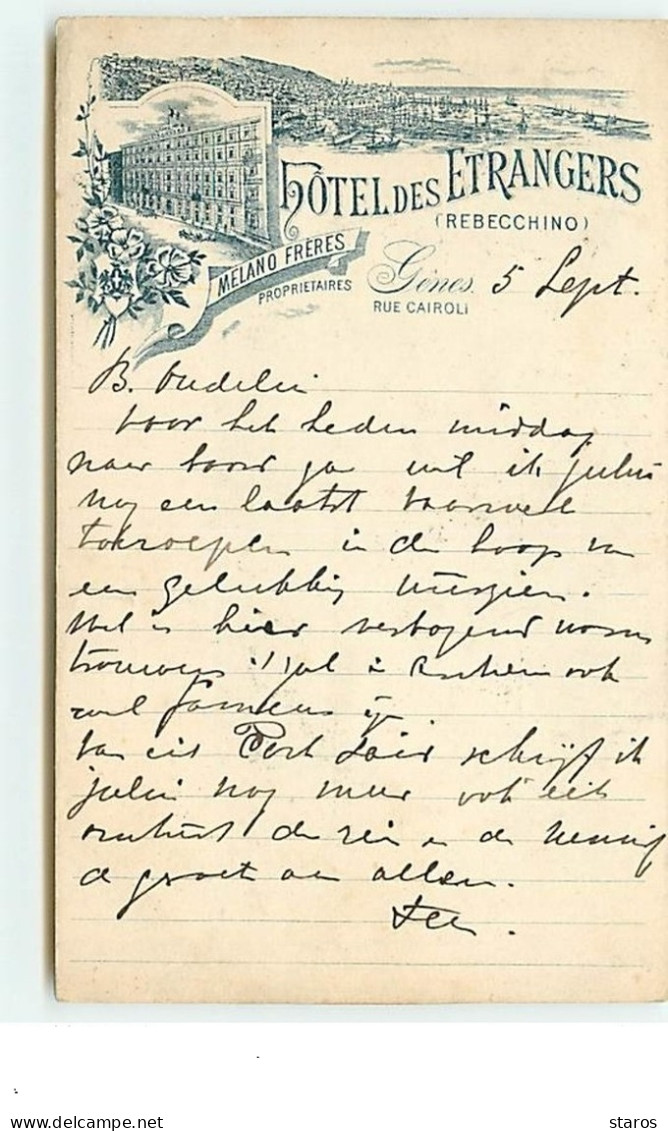 HÔTEL DES ETRANGERS
(REBECCHINO)
MELANO FRÈRES
PROPRIETAIRES
Gênes. 5 Sept.
RUE CAIROLI
B. Oudelui
voor het heden middag
naar boord ga wil ik jullie
nog een laatst vaarwel
toeroepen in de hoop van
een gelukkig weerzien.
Het is hier
trouwens zal ook
wel zijn
Van uit Port Said schrijf ik
jullie nog meer ook uit
de reis en de
de groet aan allen.
staros